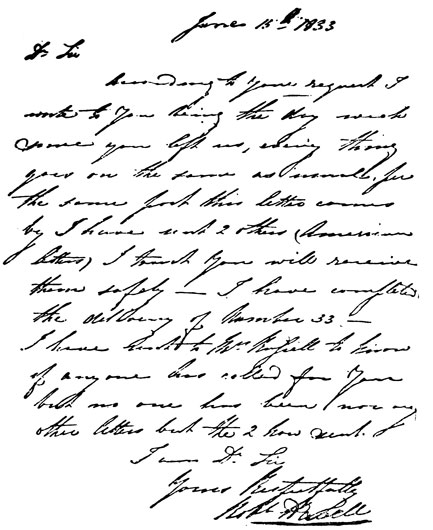 June 15th 1833
Dr Sir
According to Your request I
write to You being the day week
since you left us, every thing
goes on the same as usuall, per
the same post this letter comes
by I have sent 2 others (American
letters) I trust You will receive
them safely — I have completed
the delivery of Number 33 —
I have sent to Mrs Russell to know
if any one has called for You
but no one has been nor any
other letters but the 2 now sent.
I am Dr Sir
Yours Respectfully
Robt Havell